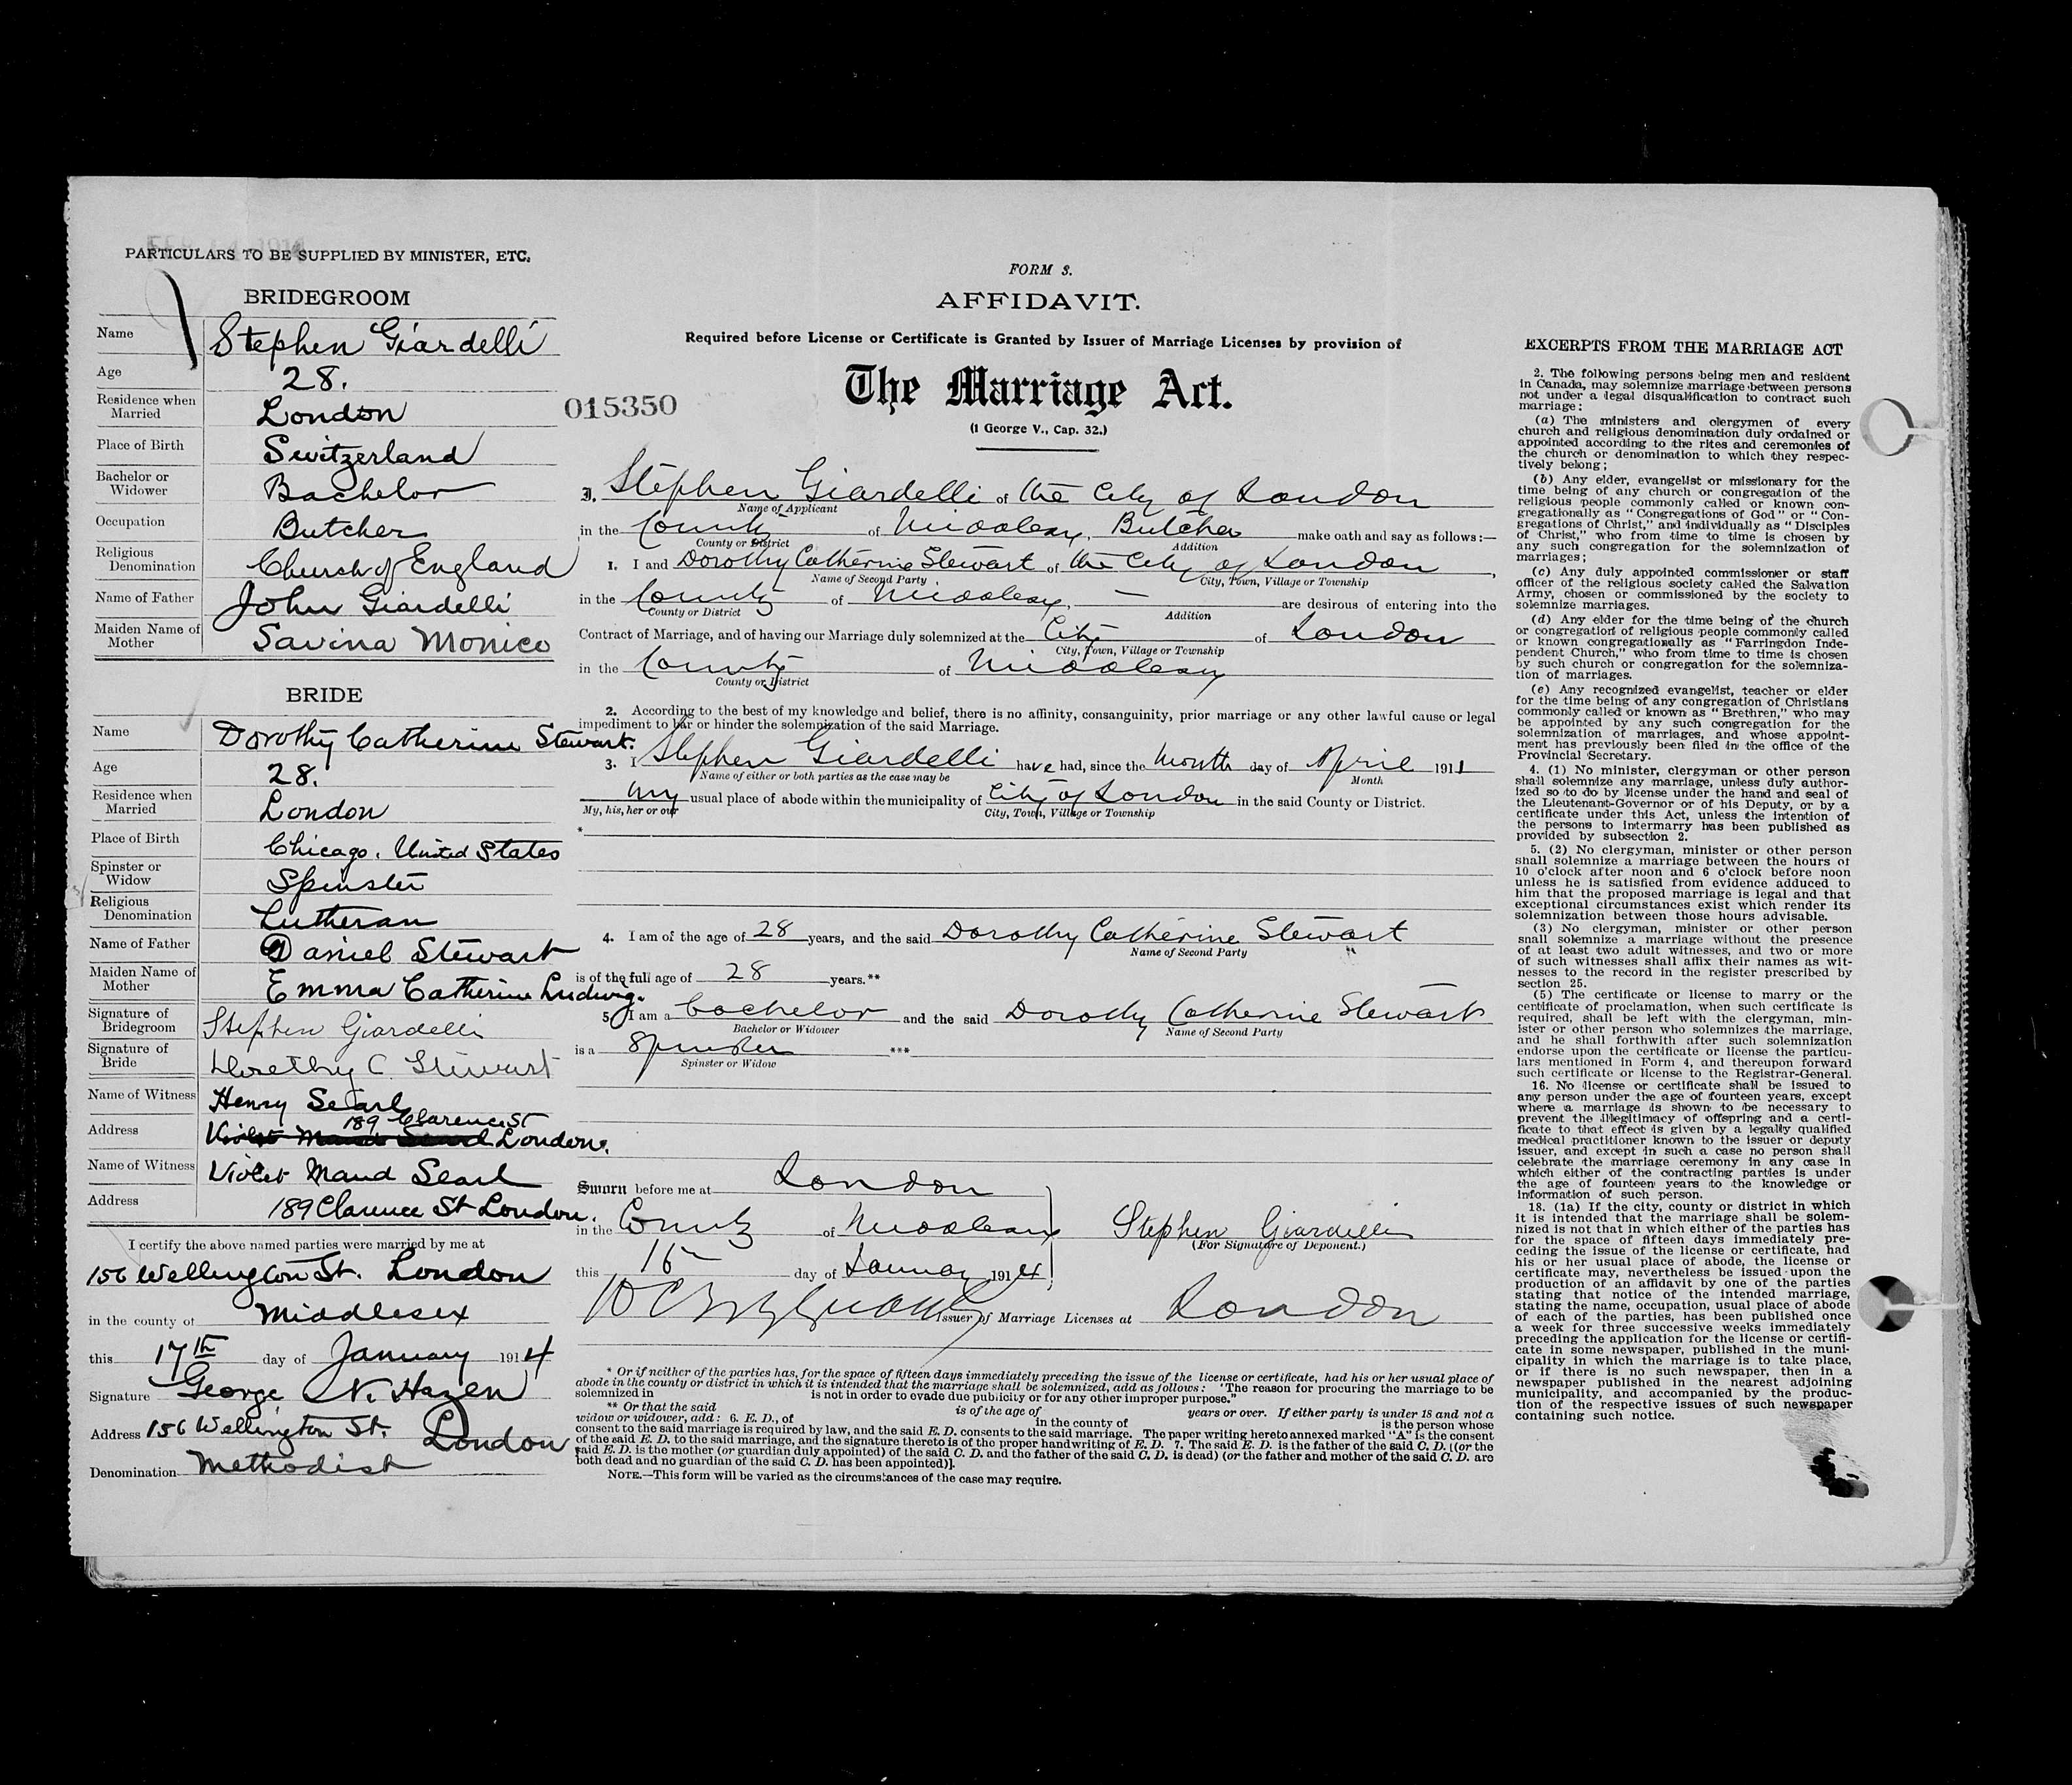 PARTICULARS TO BE SUPPLIED BY MINISTER, ETC.
BRIDEGROOM
Name Stephen Giardelli
Age 28.
Residence when Married London
Place of Birth Switzerland
Bachelor or Widower Bachelor
Occupation Butcher
Religious Denomination Church of England
Name of Father John Giardelli
Maiden Name of Mother Savina Monico
BRIDE
Name Dorothy Catherine Stewart.
Age 28.
Residence when Married London
Place of Birth Chicago. United States
Spinster or Widow Spinster
Religious Denomination Lutheran
Name of Father Daniel Stewart
Maiden Name of Mother Emma Catherine Ludwig.
Signature of Bridegroom Stephen Giardelli
Signature of Bride Dorothy C Stewart
Name of Witness Henry Searl
189 Clarence St
Address Violet Maud Searl London.
Name of Witness Violet Maud Searl
Address 189 Clarence St London.
I certify the above named parties were married by me at
156 Wellington St. London
in the county of Middlesex
this 17th day of January 1914
Signature George N. Hazen
Address 156 Wellington St. London
Denomination Methodist
015350
FORM 3.
AFFIDAVIT.
Required before License or Certificate is Granted by Issuer of Marriage Licenses by provision of
The Marriage Act.
(1 George V., Cap. 32.)
I, Stephen Giardelli of the City of London
Name of Applicant
in the County of Middlesex, Butcher make oath and say as follows:—
County or District Addition
1. I and Dorothy Catherine Stewart of the City of London,
Name of Second Party City, Town, Village or Township
in the County of Middlesex, — are desirous of entering into the
County or District Addition
Contract of Marriage, and of having our Marriage duly solemnized at the City of London
City, Town, Village or Township
in the County of Middlesex
County or District
2. According to the best of my knowledge and belief, there is no affinity, consanguinity, prior marriage or any other lawful cause or legal
impediment to bar or hinder the solemnization of the said Marriage.
3. I Stephen Giardelli have had, since the month day of April 1911
Name of either or both parties as the case may be Month
my usual place of abode within the municipality of City of London in the said County or District.
My, his, her or our City, Town, Village or Township
*
4. I am of the age of 28 years, and the said Dorothy Catherine Stewart
Name of Second Party
is of the full age of 28 years.**
5. I am a bachelor and the said Dorothy Catherine Stewart
Bachelor or Widower Name of Second Party
is a Spinster ***
Spinster or Widow
Sworn before me at London
in the County of Middlesex Stephen Giardelli
(For Signature of Deponent.)
this 16 day of January 1914
Issuer of Marriage Licenses at London
* Or if neither of the parties has, for the space of fifteen days immediately preceding the issue of the license or certificate, had his or her usual place of
abode in the county or district in which it is intended that the marriage shall be solemnized, add as follows: "The reason for procuring the marriage to be
solemnized in is not in order to evade due publicity or for any other improper purpose."
** Or that the said is of the age of years or over. If either party is under 18 and not a
widow or widower, add: 6. E. D., of in the county of is the person whose
consent to the said marriage is required by law, and the said E. D. consents to the said marriage. The paper writing hereto annexed marked "A" is the consent
of the said E. D. to the said marriage, and the signature thereto is of the proper handwriting of E. D. 7. The said E. D. is the father of the said C. D. [(or the
said E. D. is the mother (or guardian duly appointed) of the said C. D. and the father of the said C. D. is dead) (or the father and mother of the said C. D. are
both dead and no guardian of the said C. D. has been appointed)].
NOTE.—This form will be varied as the circumstances of the case may require.
EXCERPTS FROM THE MARRIAGE ACT
2. The following persons being men and resident
in Canada, may solemnize marriage between persons
not under a legal disqualification to contract such
marriage:
(a) The ministers and clergymen of every
church and religious denomination duly ordained or
appointed according to the rites and ceremonies of
the church or denomination to which they respec-
tively belong;
(b) Any elder, evangelist or missionary for the
time being of any church or congregation of the
religious people commonly called or known con-
gregationally as "Congregations of God" or "Con-
gregations of Christ," and individually as "Disciples
of Christ," who from time to time is chosen by
any such congregation for the solemnization of
marriages;
(c) Any duly appointed commissioner or staff
officer of the religious society called the Salvation
Army, chosen or commissioned by the society to
solemnize marriages.
(d) Any elder for the time being of the church
or congregation of religious people commonly called
or known congregationally as "Farringdon Inde-
pendent Church," who from time to time is chosen
by such church or congregation for the solemniza-
tion of marriages.
(e) Any recognized evangelist, teacher or elder
for the time being of any congregation of Christians
commonly called or known as "Brethren," who may
be appointed by any such congregation for the
solemnization of marriages, and whose appoint-
ment has previously been filed in the office of the
Provincial Secretary.
4. (1) No minister, clergyman or other person
shall solemnize any marriage, unless duly author-
ized so to do by license under the hand and seal of
the Lieutenant-Governor or of his Deputy, or by a
certificate under this Act, unless the intention of
the persons to intermarry has been published as
provided by subsection 2.
5. (2) No clergyman, minister or other person
shall solemnize a marriage between the hours of
10 o'clock after noon and 6 o'clock before noon
unless he is satisfied from evidence adduced to
him that the proposed marriage is legal and that
exceptional circumstances exist which render its
solemnization between those hours advisable.
(3) No clergyman, minister or other person
shall solemnize a marriage without the presence
of at least two adult witnesses, and two or more
of such witnesses shall affix their names as wit-
nesses to the record in the register prescribed by
section 25.
(5) The certificate or license to marry or the
certificate of proclamation, when such certificate is
required, shall be left with the clergyman, min-
ister or other person who solemnizes the marriage,
and he shall forthwith after such solemnization
endorse upon the certificate or license the particu-
lars mentioned in Form 4, and thereupon forward
such certificate or license to the Registrar-General.
16. No license or certificate shall be issued to
any person under the age of fourteen years, except
where a marriage is shown to be necessary to
prevent the illegitimacy of offspring and a certi-
ficate to that effect is given by a legally qualified
medical practitioner known to the issuer or deputy
issuer, and except in such a case no person shall
celebrate the marriage ceremony in any case in
which either of the contracting parties is under
the age of fourteen years to the knowledge or
information of such person.
18. (1a) If the city, county or district in which
it is intended that the marriage shall be solem-
nized is not that in which either of the parties has
for the space of fifteen days immediately pre-
ceding the issue of the license or certificate, had
his or her usual place of abode, the license or
certificate may, nevertheless be issued upon the
production of an affidavit by one of the parties
stating that notice of the intended marriage,
stating the name, occupation, usual place of abode
of each of the parties, has been published once
a week for three successive weeks immediately
preceding the application for the license or certifi-
cate in some newspaper, published in the muni-
cipality in which the marriage is to take place,
or if there is no such newspaper, then in a
newspaper published in the nearest adjoining
municipality, and accompanied by the produc-
tion of the respective issues of such newspaper
containing such notice.